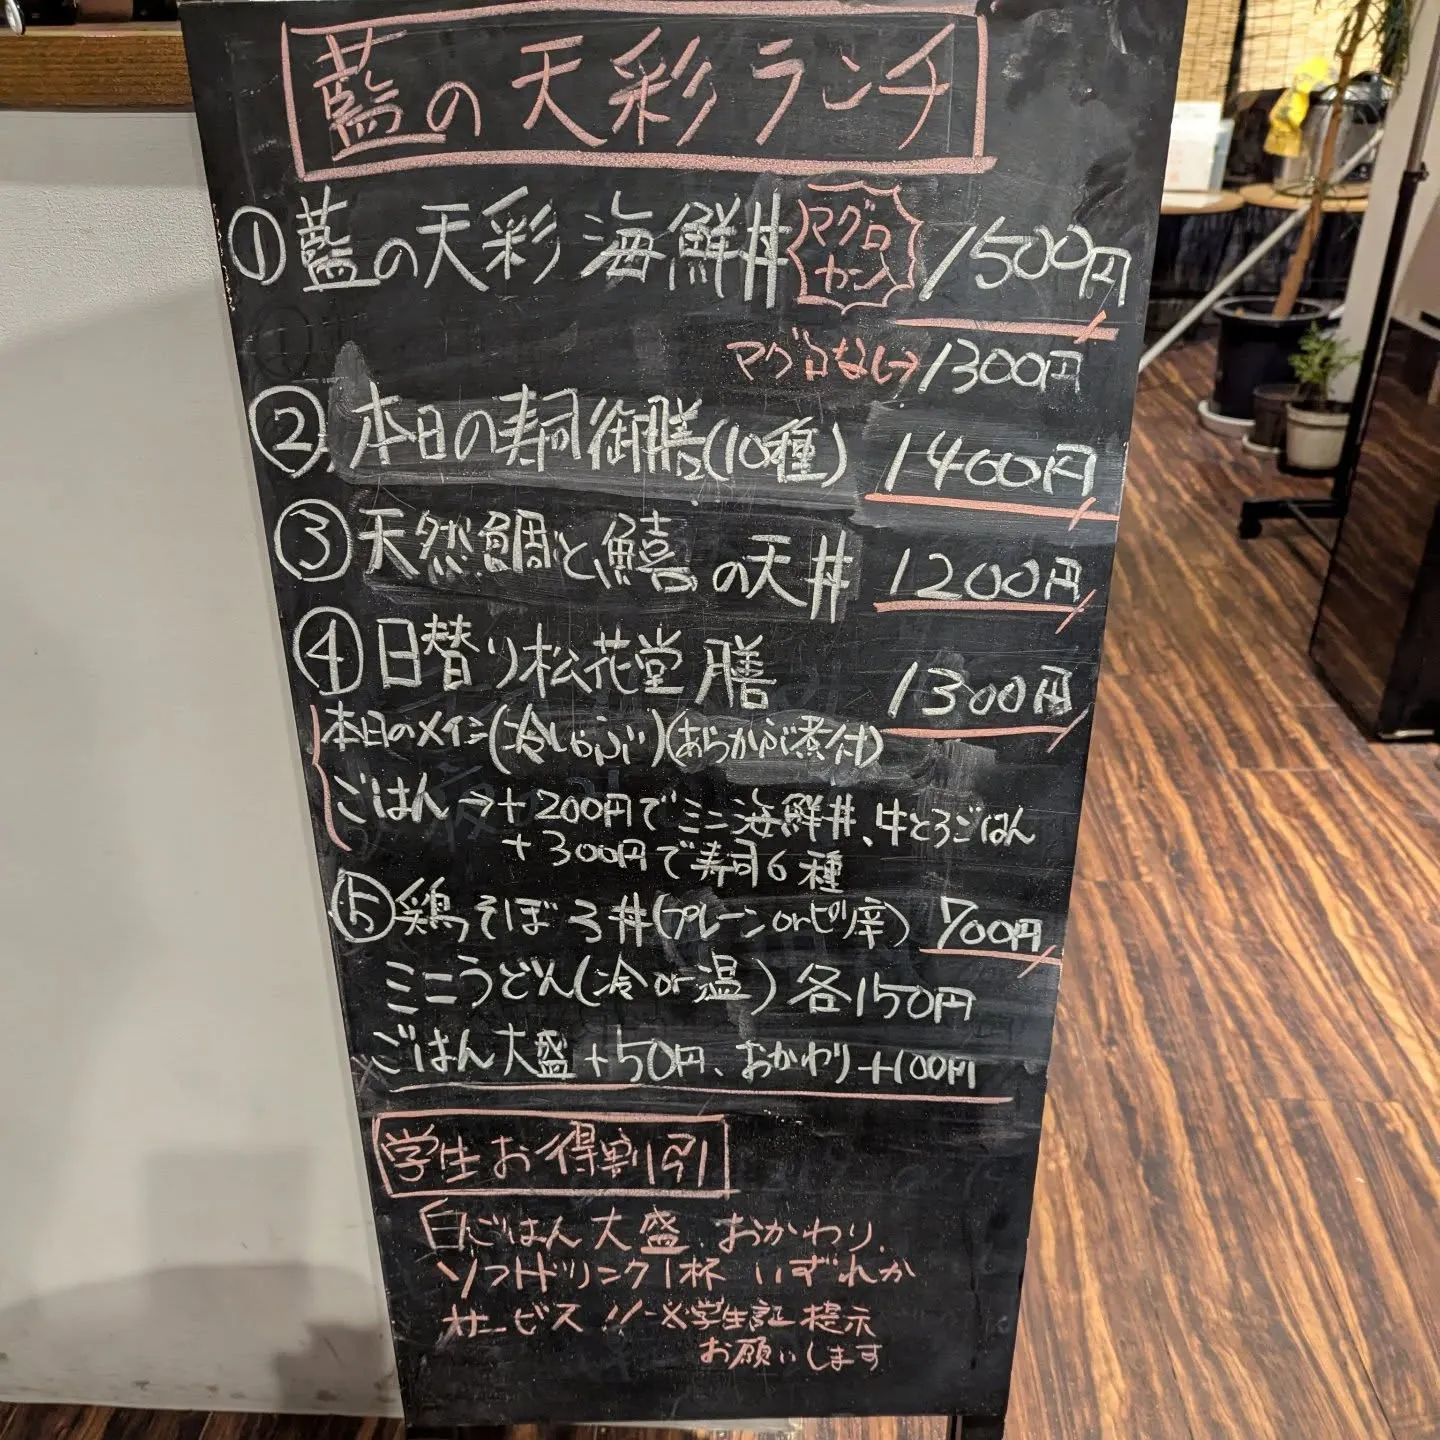 藍の天彩ランチ
①藍の天彩 海鮮丼 マグロ カマ入 1500円
マグロなし→1300円
②本日の寿司御膳(10種) 1400円
③天然鯛と鱚の天丼 1200円
④日替り松花堂膳 1300円
本日のメイン(冷しゃぶ)(あらかぶ煮付)
ごはん→+200円でミニ海鮮丼、牛とろごはん
+300円で寿司6種
⑤鶏そぼろ丼(プレーンorピリ辛) 700円
ミニうどん(冷or温)各150円
ごはん大盛+50円、おかわり+100円
学生お得割引
白ごはん大盛、おかわり、
ソフトドリンク1杯 いずれか
サービス!!※学生証提示
お願いします